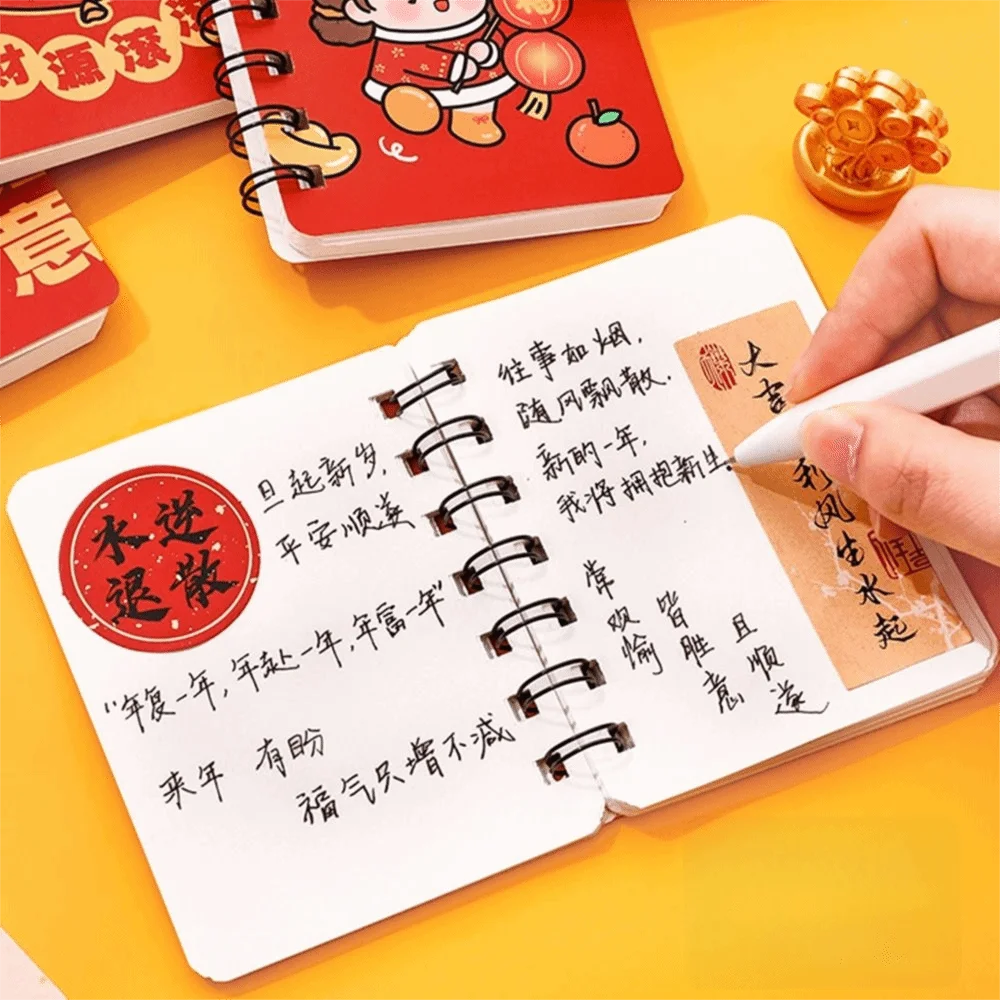 财源滚滚
福
意
水逆
退散
旦起新岁,
平安顺遂
“年复一年,年赴一年,年富一年”
来年 有盼
福气只增不减
往事如烟,
随风飘散.
新的一年,
我将拥抱新生.
常欢愉
皆胜意
且顺遂
大吉 利风生水起